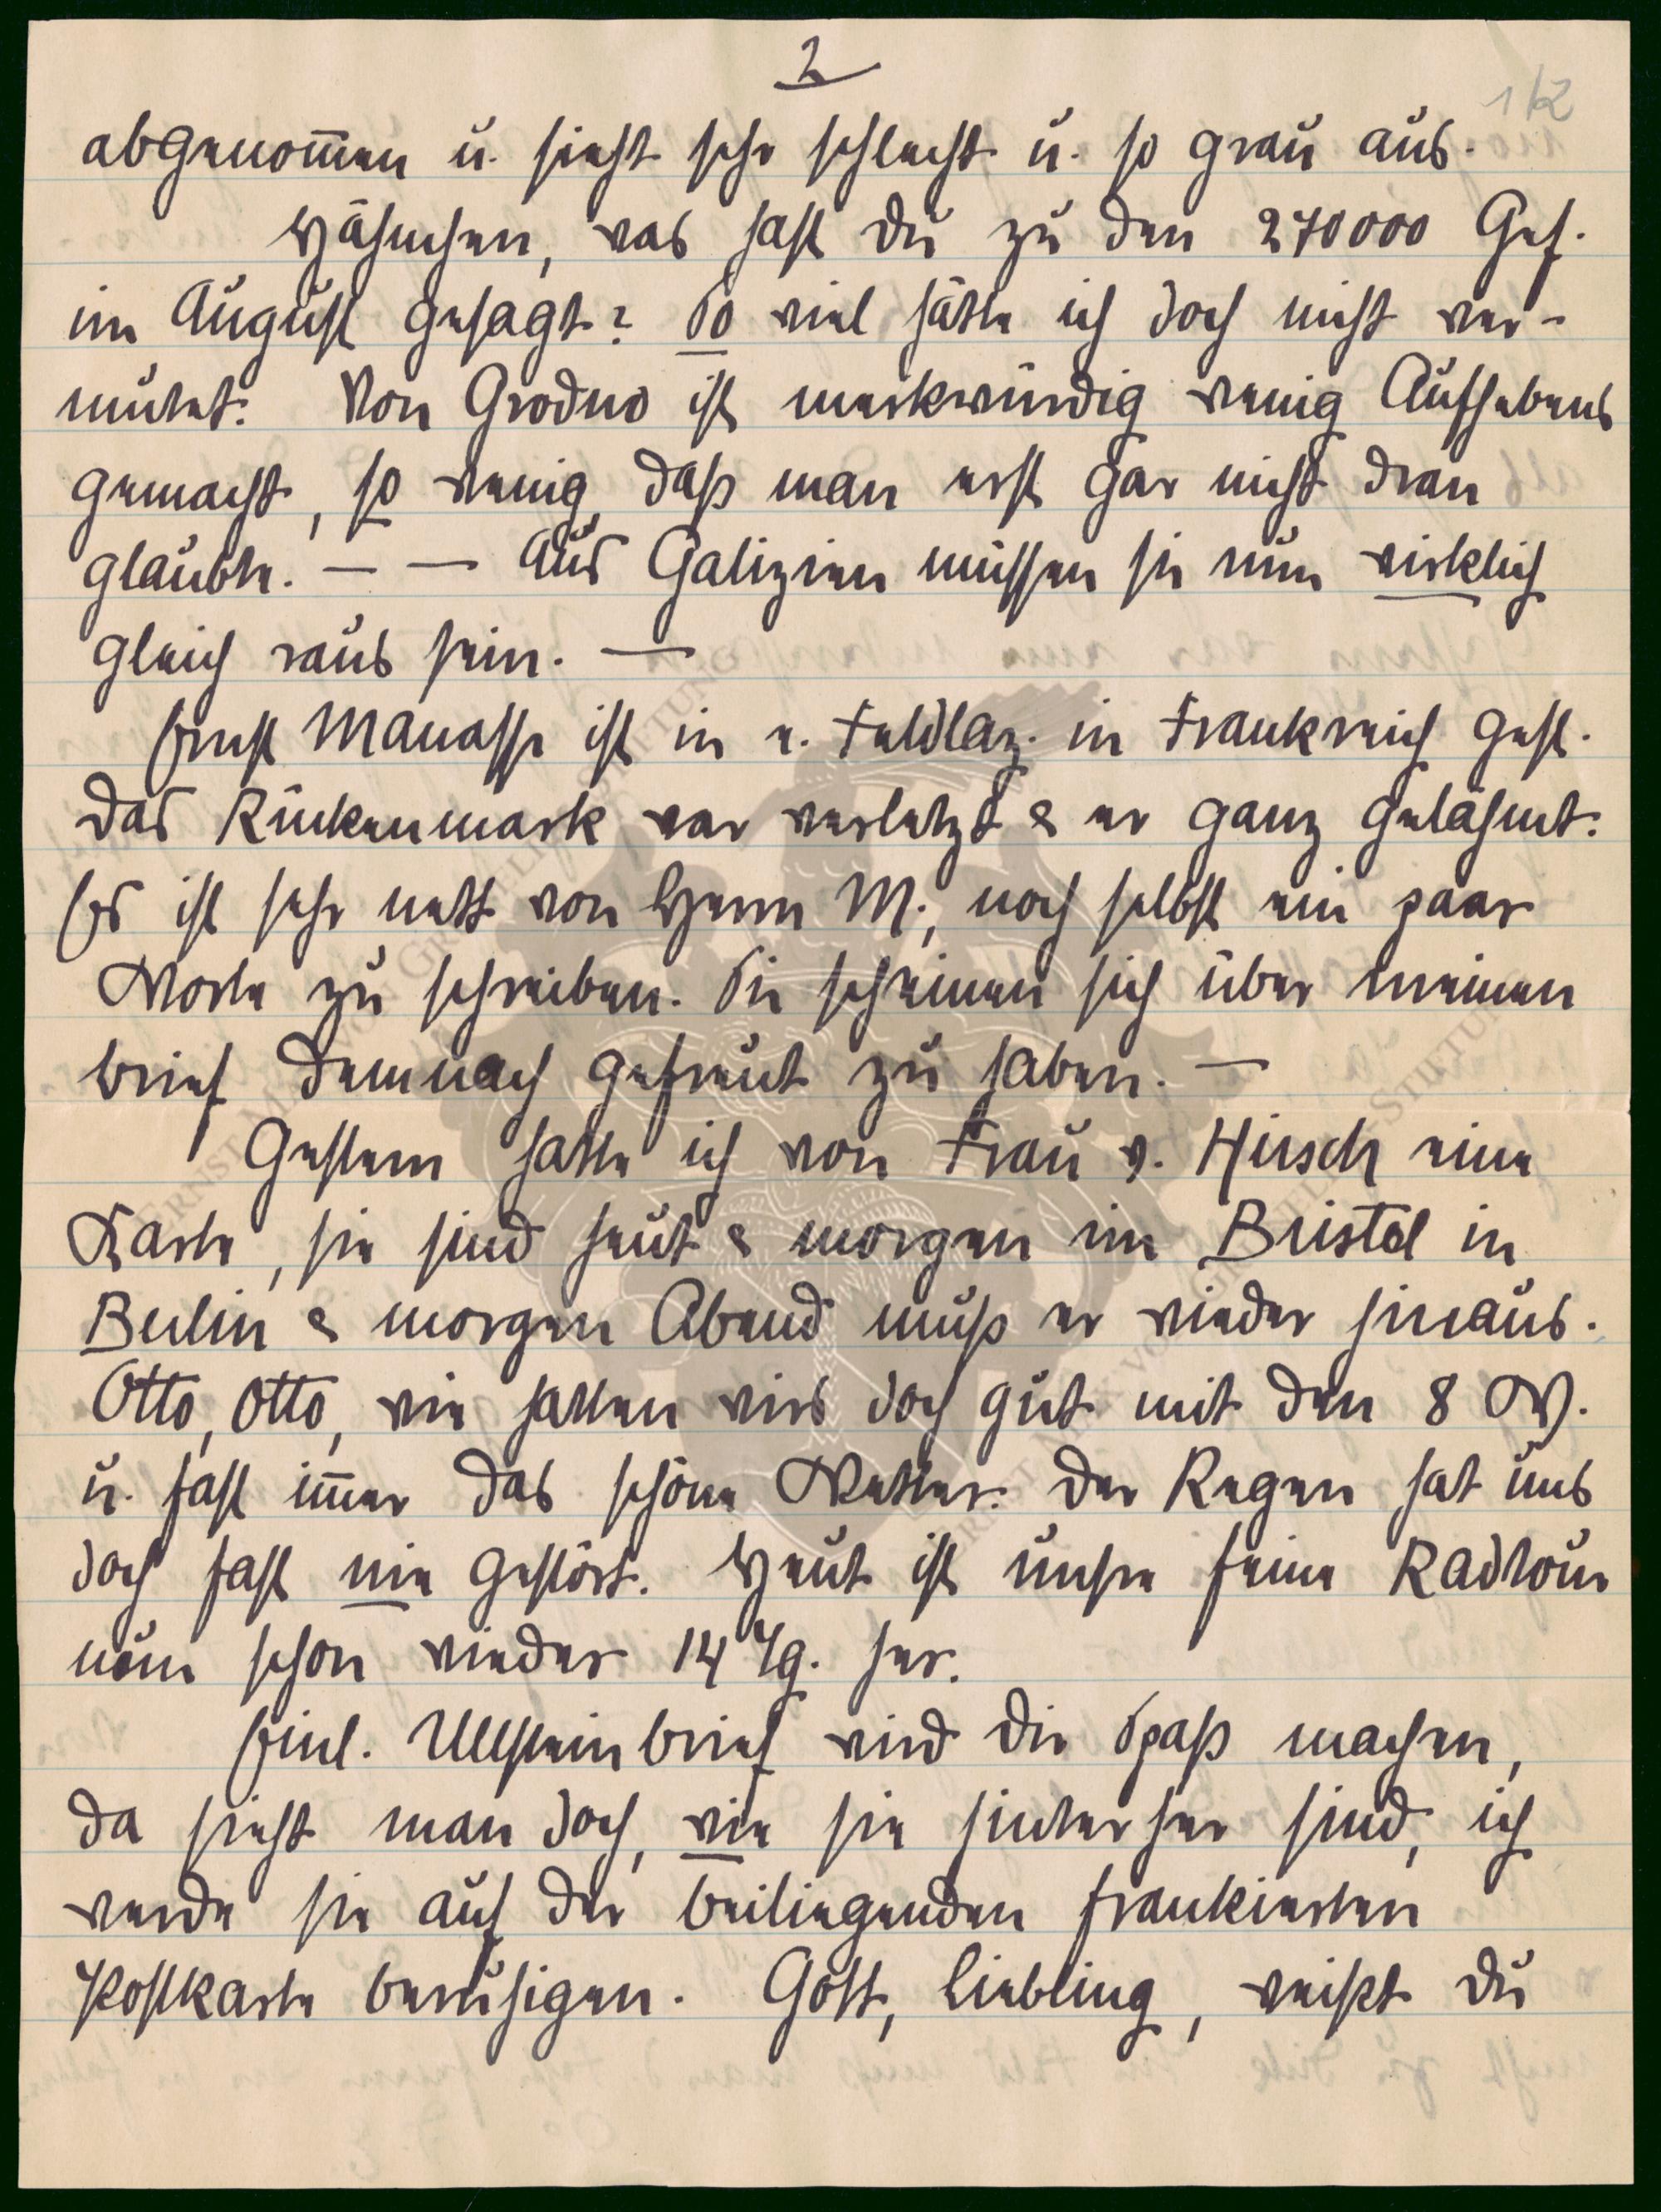 2
1/2
abgenommen u. sieht sehr schlecht u. so grau aus.
Hähnchen, was hast Du zu den 270000 Gef.
im August gesagt? So viel hätte ich doch nicht ver-
mutet. Von Grodno ist merkwürdig wenig Aufhebens
gemacht, so wenig, daß man erst gar nicht dran
glaubte. — — Aus Galizien müssen sie nun wirklich
gleich raus sein. —
Ernst Manasse ist in e. Feldlaz. in Frankreich gest.
Das Rückenmark war verletzt & er ganz gelähmt.
Es ist sehr nett von Herrn M., noch selbst ein paar
Worte zu schreiben. Sie scheinen sich über meinen
Brief demnach gefreut zu haben. —
Gestern hatte ich von Frau v. Hirsch eine
Karte, sie sind heut & morgen im Bristol in
Berlin & morgen Abend muß er wieder hinaus.
Otto, Otto, wie hatten wirs doch gut mit den 8 W.
u. fast immer das schöne Wetter. Der Regen hat uns
doch fast nie gestört. Heut ist unsre feine Radtour
nun schon wieder 14 Tg. her.
Einl. Ullsteinbrief wird Dir Spaß machen,
da sieht man doch, wie sie hinterher sind, ich
werde sie auf der beiliegenden frankierten
Postkarte beruhigen. Gott, Liebling, weißt Du